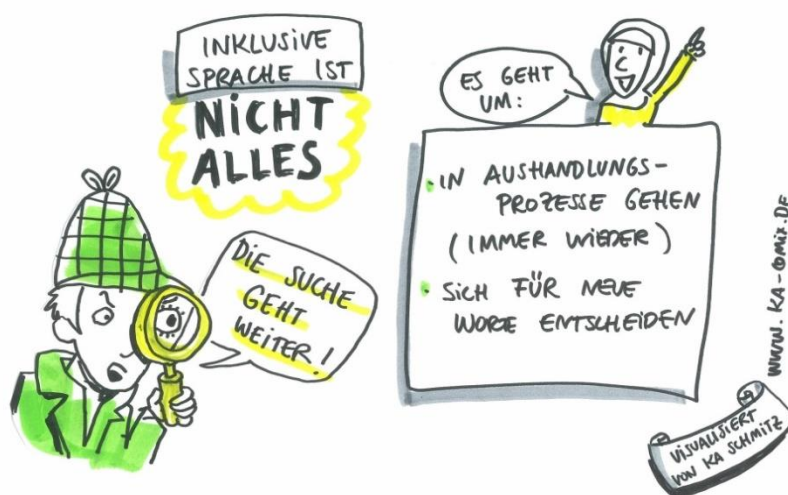 INKLUSIVE
SPRACHE IST
NICHT
ALLES
DIE SUCHE
GEHT
WEITER!
ES GEHT
UM:
• IN AUSHANDLUNGS-
PROZESSE GEHEN
(IMMER WIEDER)
• SICH FÜR NEUE
WORTE ENTSCHEIDEN
WWW.KA-COMIX.DE
VISUALISIERT
VON KA SCHMITZ